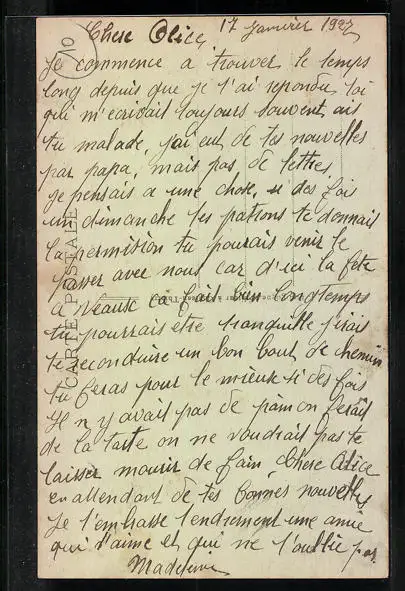 10
17 Janvier 1927
Chere Alice,
Je commence a trouver le temps
long depuis que je t'ai repondu toi
qui m'ecrivait toujours souvent, ais
tu malade, j'ai eut de tes nouvelles
par papa, mais pas de lettres.
Je pensais a une chose, si des fois
un dimanche tes patrons te donnais
la permision tu pourais venir le
passer avec nous car d'ici la fete
a ca fait bien longtemps
tu pourrais etre tranquille j'irais
te reconduire un bon bout de chemin
tu feras pour le mieux si des fois
Il n y avait pas de pain on ferait
de la tarte on ne voudrait pas te
laisser mourir de faim Chere Alice
en attendant de tes bonnes nouvelles
Je t'embrasse tendrement une amie
qui t'aime et qui ne t'oublie pas
Madeleine
CARTE POSTALE